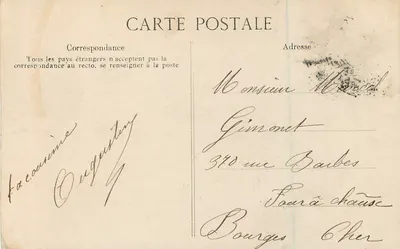 CARTE POSTALE
Correspondance
Tous les pays étrangers n'acceptent pas la
correspondance au recto, se renseigner à la poste
Adresse
ta cousine
Augustine
Monsieur
Gimonet
rue Barbes
Four à chaux
Bourges Cher